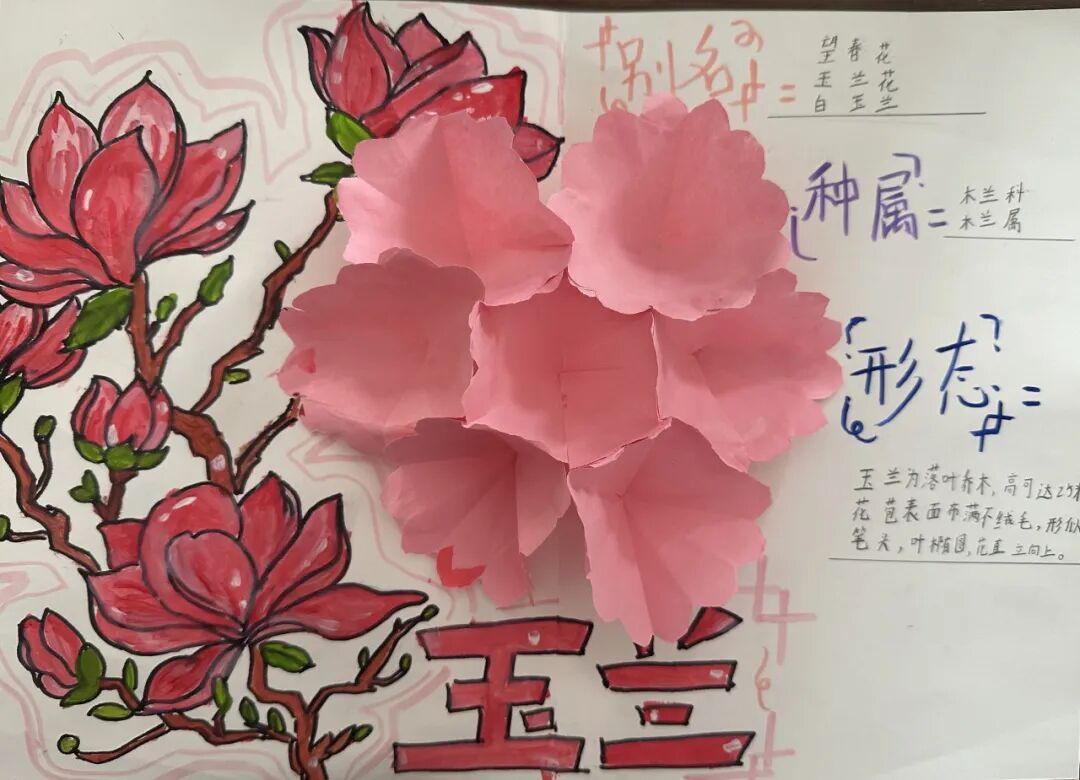 别名=
望春花
玉兰花
白玉兰
种属=
木兰科
木兰属
形态=
玉兰为落叶乔木,高可达25米
花苞表面布满不绒毛,形似
笔头,叶椭圆,花直立向上。
玉兰